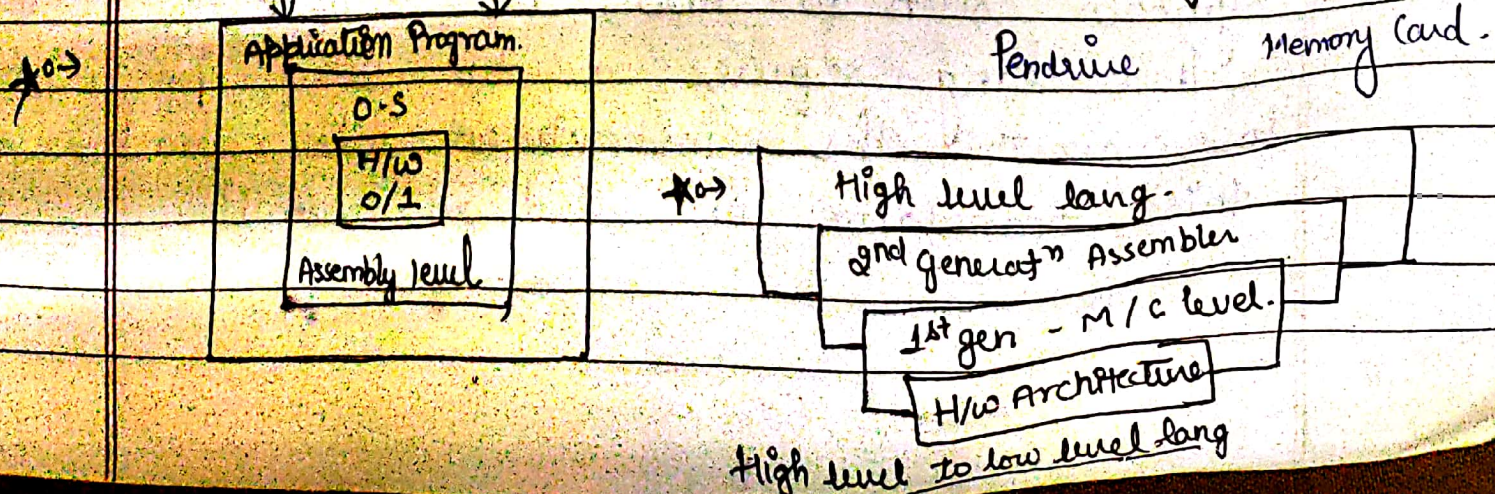 Application Program.
O.S
H/W
0/1
Assembly level
Pendrive Memory Card.
High level lang.
2nd generatn Assembler
1st gen - M/C level.
H/W Architecture
High level to low level lang